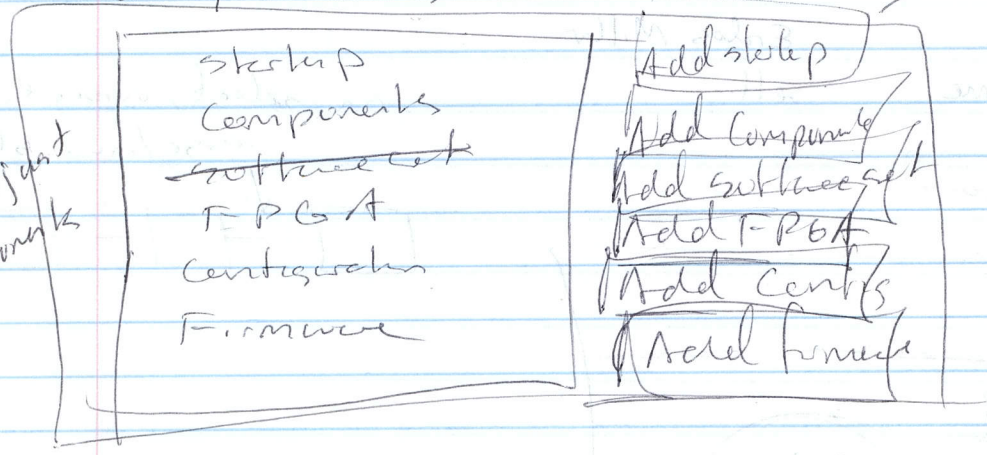 startup
Components
software set
FPGA
Configuration
Firmware
Add startup
Add Components
Add software set
Add FPGA
Add Config
Add firmware
just